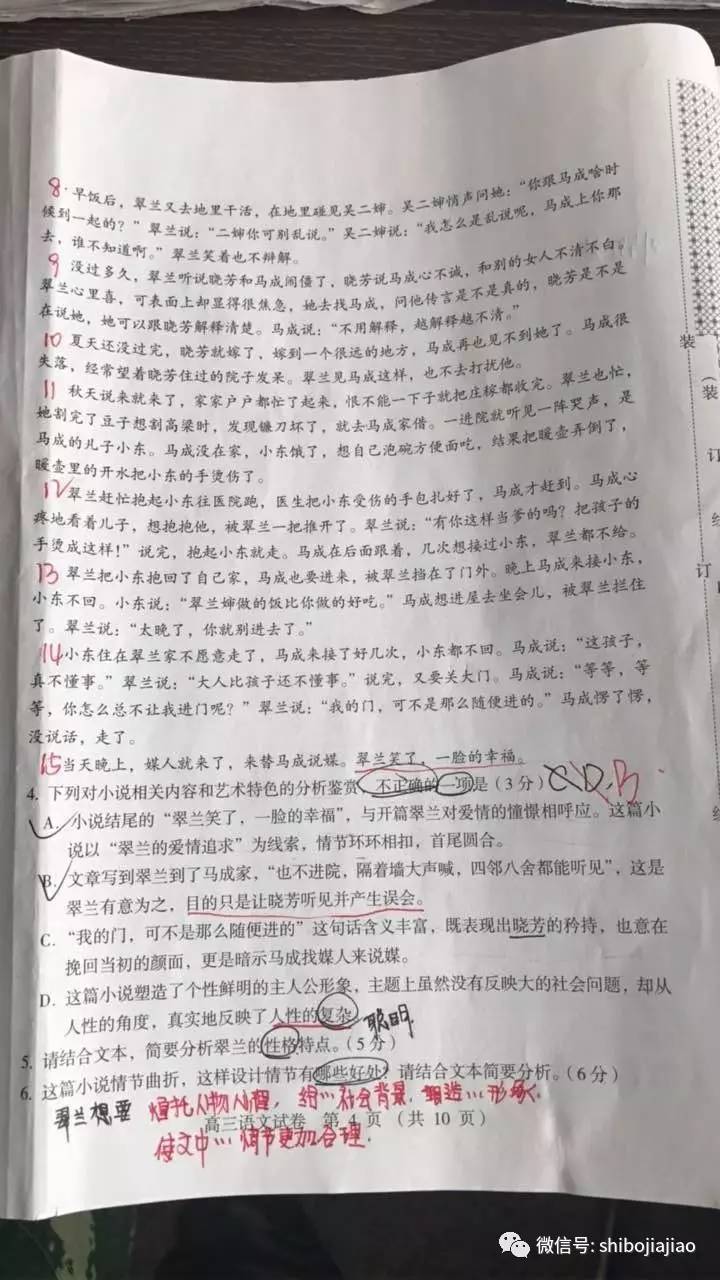 8.早饭后，翠兰又去地里干活，在地里碰见吴二婶。吴二婶悄声问她：“你跟马成啥时
候到一起的？”翠兰说：“二婶你可别乱说。”吴二婶说：“我怎么是乱说呢，马成上你那
去，谁不知道啊。”翠兰笑着也不辩解。
9 没过多久，翠兰听说晓芳和马成闹僵了，晓芳说马成心不诚，和别的女人不清不白。
翠兰心里喜，可表面上却显得很焦急，她去找马成，问他传言是不是真的，晓芳是不是
在说她，她可以跟晓芳解释清楚。马成说：“不用解释，越解释越不清。”
10 夏天还没过完，晓芳就嫁了，嫁到一个很远的地方，马成再也见不到她了。马成很
失落，经常望着晓芳住过的院子发呆。翠兰见马成这样，也不去打扰他。
11 秋天说来就来了，家家户户都忙了起来，恨不能一下子就把庄稼都收完。翠兰也忙，
她割完了豆子想割高粱时，发现镰刀坏了，就去马成家借。一进院就听见一阵哭声，是
马成的儿子小东。马成没在家，小东饿了，想自己泡碗方便面吃，结果把暖壶弄倒了，
暖壶里的开水把小东的手烫伤了。
12 翠兰赶忙抱起小东往医院跑，医生把小东受伤的手包扎好了，马成才赶到。马成心
疼地看着儿子，想抱抱他，被翠兰一把推开了。翠兰说：“有你这样当爹的吗？把孩子的
手烫成这样！”说完，抱起小东就走。马成在后面跟着，几次想接过小东，翠兰都不给。
13 翠兰把小东抱回了自己家，马成也要进来，被翠兰挡在了门外。晚上马成来接小东，
小东不回。小东说：“翠兰婶做的饭比你做的好吃。”马成想进屋去坐会儿，被翠兰拦住
了。翠兰说：“太晚了，你就别进去了。”
14 小东住在翠兰家不愿意走了，马成来接了好几次，小东都不回。马成说：“这孩子，
真不懂事。”翠兰说：“大人比孩子还不懂事。”说完，又要关大门。马成说：“等等，等
等，你怎么总不让我进门呢？”翠兰说：“我的门，可不是那么随便进的。”马成愣了愣，
没说话，走了。
15 当天晚上，媒人就来了，来替马成说媒。翠兰笑了，一脸的幸福。
4. 下列对小说相关内容和艺术特色的分析鉴赏，不正确的一项是（3分）C D B
A. 小说结尾的“翠兰笑了，一脸的幸福”，与开篇翠兰对爱情的憧憬相呼应。这篇小
说以“翠兰的爱情追求”为线索，情节环环相扣，首尾圆合。
B. 文章写到翠兰到了马成家，“也不进院，隔着墙大声喊，四邻八舍都能听见”，这是
翠兰有意为之，目的只是让晓芳听见并产生误会。
C. “我的门，可不是那么随便进的”这句话含义丰富，既表现出晓芳的矜持，也意在
挽回当初的颜面，更是暗示马成找媒人来说媒。
D. 这篇小说塑造了个性鲜明的主人公形象，主题上虽然没有反映大的社会问题，却从
人性的角度，真实地反映了人性的复杂。
聪明
5. 请结合文本，简要分析翠兰的性格特点。（5分）
6. 这篇小说情节曲折，这样设计情节有哪些好处？请结合文本简要分析。（6分）
翠兰想要 烘托人物心理，给…社会背景.塑造…形象.
高三语文试卷 第 4 页 （共 10 页）
使文中…情节更加合理.
装
（装
订
线
订
微信号: shibojiajiao